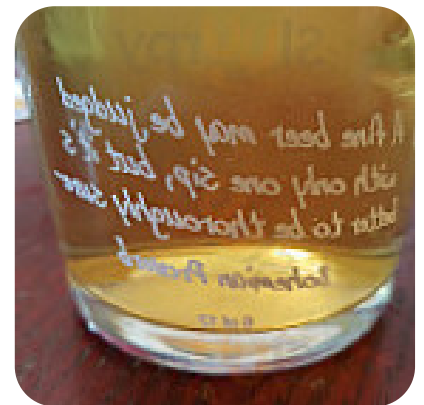 A fine beer may be judged
with only one sip, but it's
better to be thoroughly sure
Bohemian Proverb
6 of 12